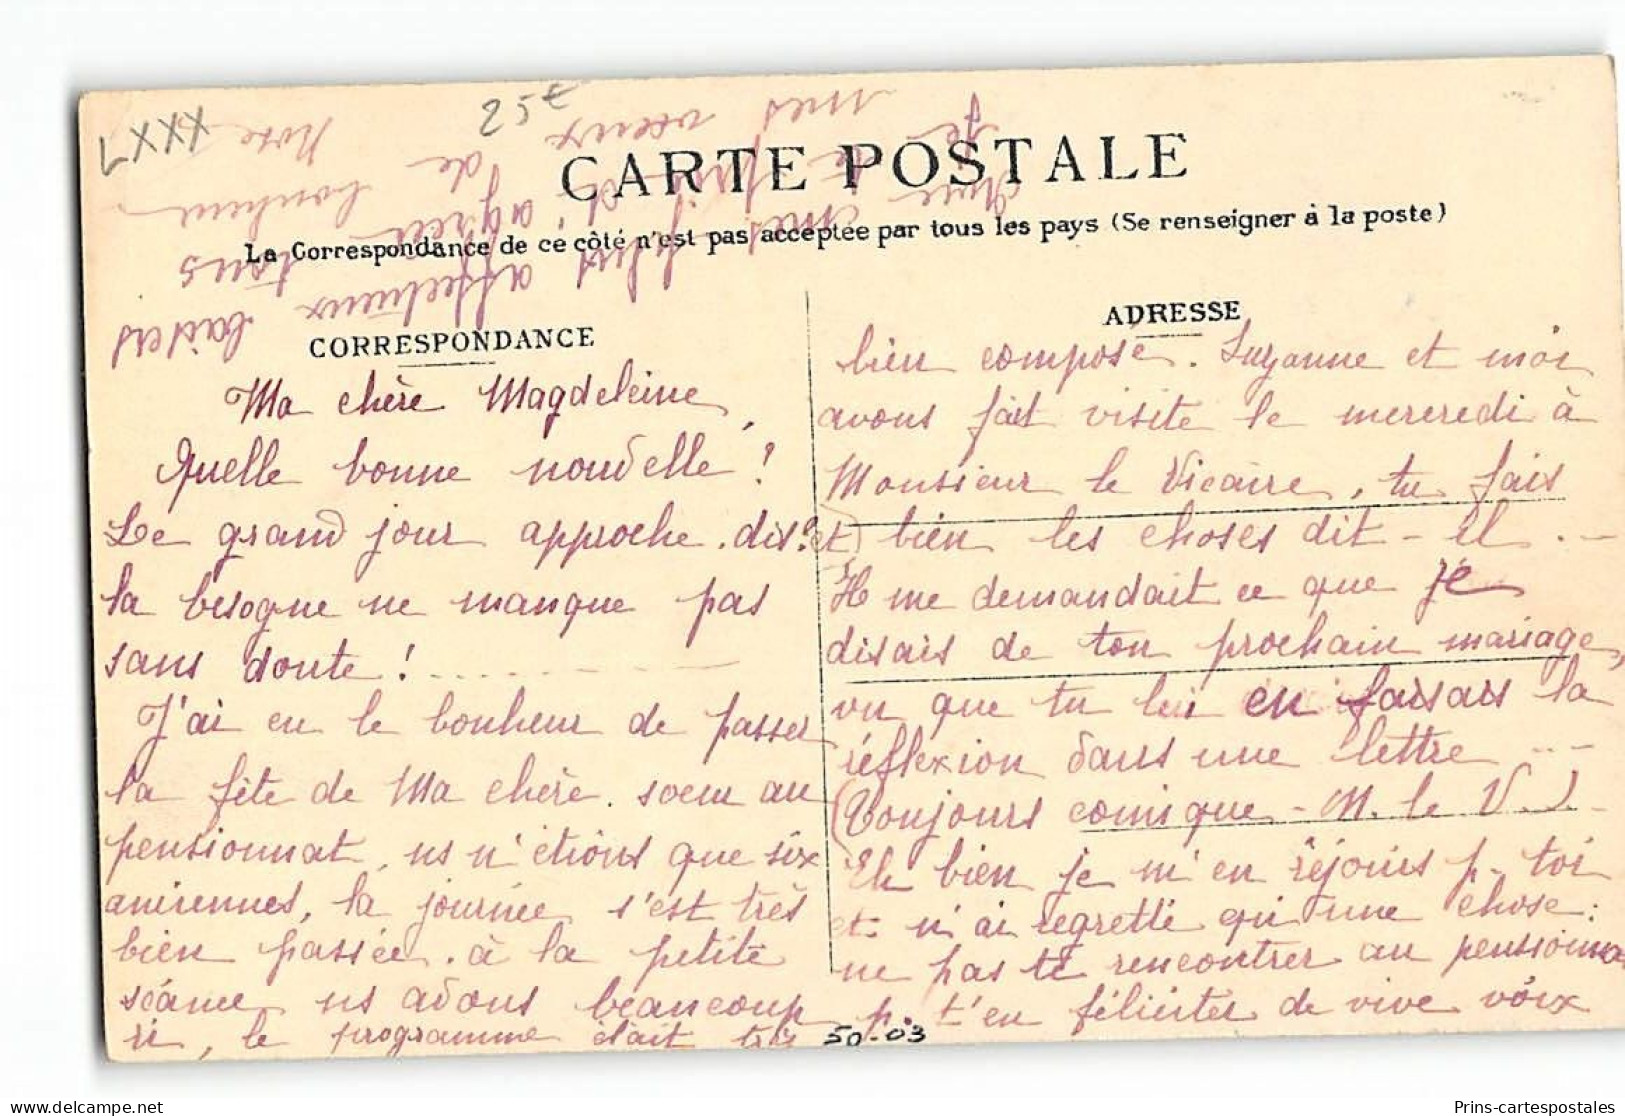 LXXX
25€
CARTE POSTALE
La Correspondance de ce côté n'est pas acceptée par tous les pays (Se renseigner à la poste)
CORRESPONDANCE
ADRESSE
Ma chère Magdeleine,
Quelle bonne nouvelle !
Le grand jour approche. dis ?
la besogne ne manque pas
sans doute ! . . . . . - - -
J'ai eu le bonheur de passer
la fête de Ma chère. soeur au
pensionnat, ns n'étions que six
anciennes, la journée s'est très
bien passée. à la petite
séance ns avons beaucoup
ri, le programme était très
bien composé. Suzanne et moi
avons fait visite le mercredi à
Monsieur le Vicaire, tu fais
et bien les choses dit-il . -
Il me demandait ce que je
disais de ton prochain mariage,
vu que tu lui en faisais la
réflexion dans une lettre - - -
(Toujours comique - M. le V..)
Eh bien je m'en réjouis p. toi
et n'ai regretté qu'une chose :
ne pas te rencontrer au pensionna
p. t'en féliciter de vive voix
Je te prie d'agréer tous
mes voeux de bonheur
Avec mes plus affectueux baisers
50-03
Prins-cartespostales